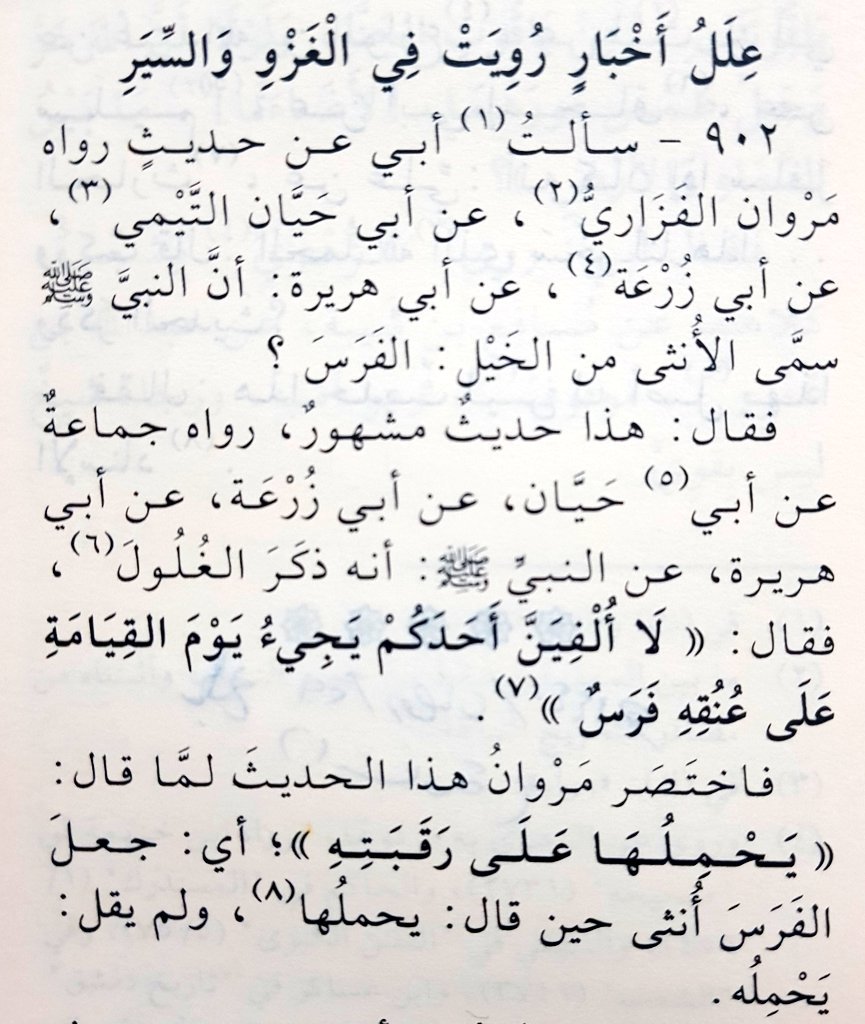 عِلَلُ أَخْبَارٍ رُوِيَتْ فِي الْغَزْوِ وَالسِّيَرِ
٩٠٢ - سألتُ(١) أبي عن حديثٍ رواه
مَرْوان الفَزَاريُّ(٢)، عن أبي حَيَّان التَّيْمي(٣)،
عن أبي زُرْعَة(٤)، عن أبي هريرة: أنَّ النبيَّ ﷺ
سمَّى الأُنثى من الخَيْل: الفَرَسَ ؟
فقال: هذا حديثٌ مشهورٌ، رواه جماعةٌ
عن أبي(٥) حَيَّان، عن أبي زُرْعَة، عن أبي
هريرة، عن النبيِّ ﷺ: أنه ذكَرَ الغُلُولَ(٦)،
فقال: « لَا أُلْفِيَنَّ أَحَدَكُمْ يَجِيءُ يَوْمَ القِيَامَةِ
عَلَى عُنُقِهِ فَرَسٌ »(٧).
فاختَصَر مَرْوانُ هذا الحديثَ لمَّا قال:
« يَحْمِلُهَا عَلَى رَقَبَتِهِ »؛ أي: جعلَ
الفَرَسَ أُنثى حين قال: يحملُها(٨)، ولم يقل:
يَحْمِلُه.